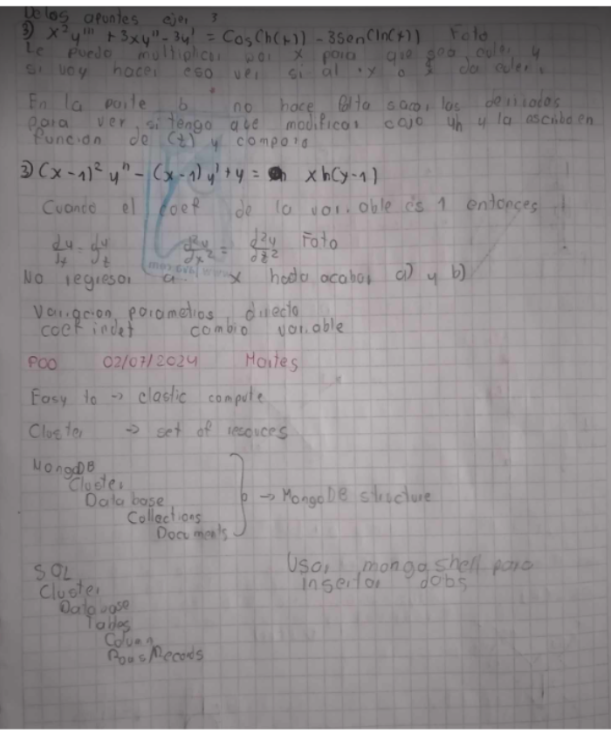 De los apuntes ejer 3
3) x²y''' + 3xy'' - 3y' = Cos(ln(x)) - 3sen(ln(x)) Foto
Le puedo multiplicar por x para que sea euler y
si voy hacer eso ver si al ·x o da euler.
En la parte b no hace falta sacar las derivadas
para ver si tengo que modificar cojo yh y la escribo en
funcion de (t) y comparo
3) (x-1)² y'' - (x-1) y' + y = x ln(x-1)
Cuando el coef de la variable es 1 entonces
dy/dx = dy/dt d²y/dx² = d²y/dt² Foto
No regresar a x hasta acabar a) y b)
Variacion parametros directo
coef indet cambio variable
POO 02/07/2024 Martes
Easy to → elastic compute
Cluster → set of resouces
MongoDB
Cluster
Data base → MongoDB structure
Collections
Documents
SQL Usar mongashell para
Cluster insertar dobs
Database
Tables
Column
Rows/Records